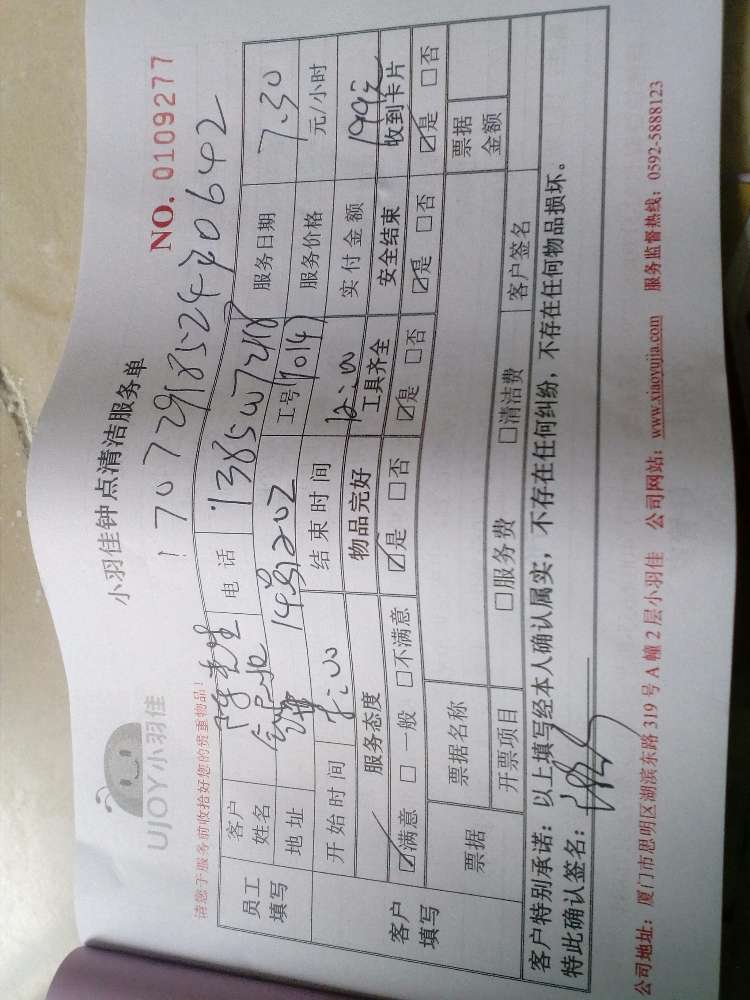 UJOY小羽佳
小羽佳钟点清洁服务单
NO. 0109277
请您于服务前收拾好您的贵重物品!
员工填写 客户姓名 陈先生 电话 服务日期 7.30
地址 工号 服务价格 元/小时
开始时间 结束时间 12:00 实付金额
客户填写 服务态度 物品完好 工具齐全 安全结束 收到卡片
☑满意 □一般 □不满意 ☑是 □否 ☑是 □否 ☑是 □否 ☑是 □否
票据 票据名称 票据金额
开票项目 □服务费 □清洁费 客户签名
客户特别承诺：以上填写经本人确认属实，不存在任何纠纷，不存在任何物品损坏。
特此确认签名：
公司地址：厦门市思明区湖滨东路 319 号 A 幢 2 层小羽佳 公司网站：www.xiaoyujia.com 服务监督热线：0592-5888123